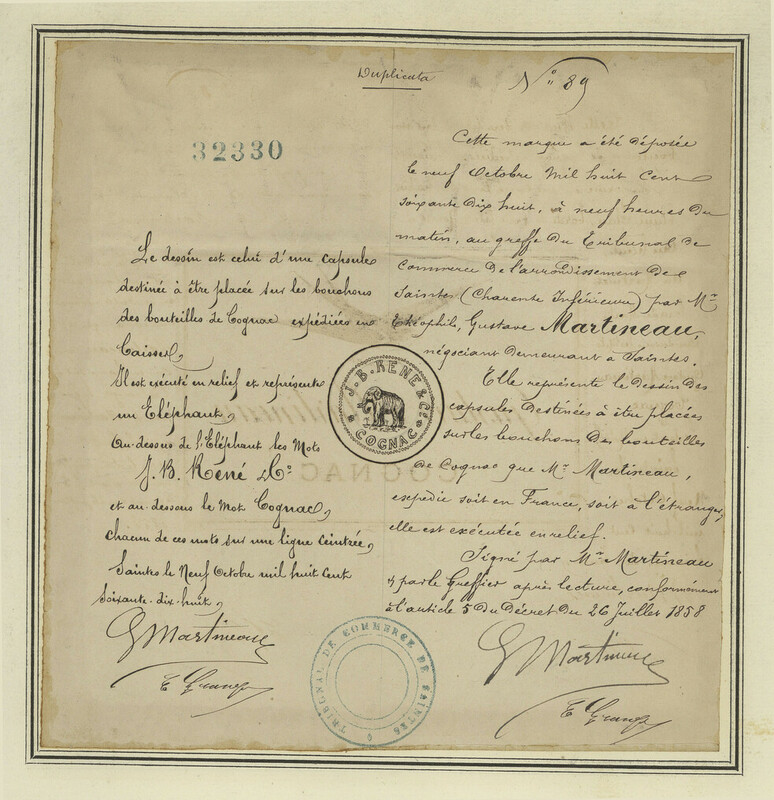 Duplicata
N° 89
32330
Le dessin est celui d'une capsule
destinée à être placée sur les bouchons
des bouteilles de Cognac expédiées en
Caisses,
Il est exécuté en relief et représente
un Eléphant,
Au-dessus de l'Eléphant les Mots
J. B. René & Cº
et au-dessous le Mot Cognac,
chacun de ces mots sur une ligne ceintrée,
Saintes le Neuf Octobre mil huit Cent
soixante-dix-huit,
G Martineau
E
J. B. RENE & Cº
COGNAC
Cette marque a été déposée
le neuf Octobre Mil huit Cent
soixante dix huit, à neuf heures du
matin, au greffe du Tribunal de
Commerce de l'arrondissement de
Saintes (Charente Inférieure) par Mr
Théophile, Gustave Martineau,
négociant demeurant à Saintes.
Elle représente le dessin des
capsules destinées à être placées
sur les bouchons des bouteilles
de Cognac que Mr Martineau,
expédie soit en France, soit à l'étranger,
elle est exécutée en relief.
Signé par Mr Martineau
& par le Greffier après lecture, conformément
à l'article 5 du Décret du 26 Juillet 1858
G Martineau
E
TRIBUNAL DE COMMERCE DE SAINTES
COGNAC